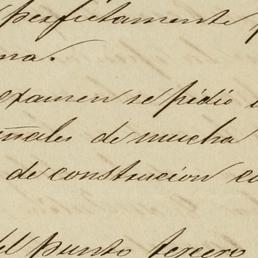 perfectamente
ma.
examen se pidio
ñales de mucha
de construcion co
el punto tercero